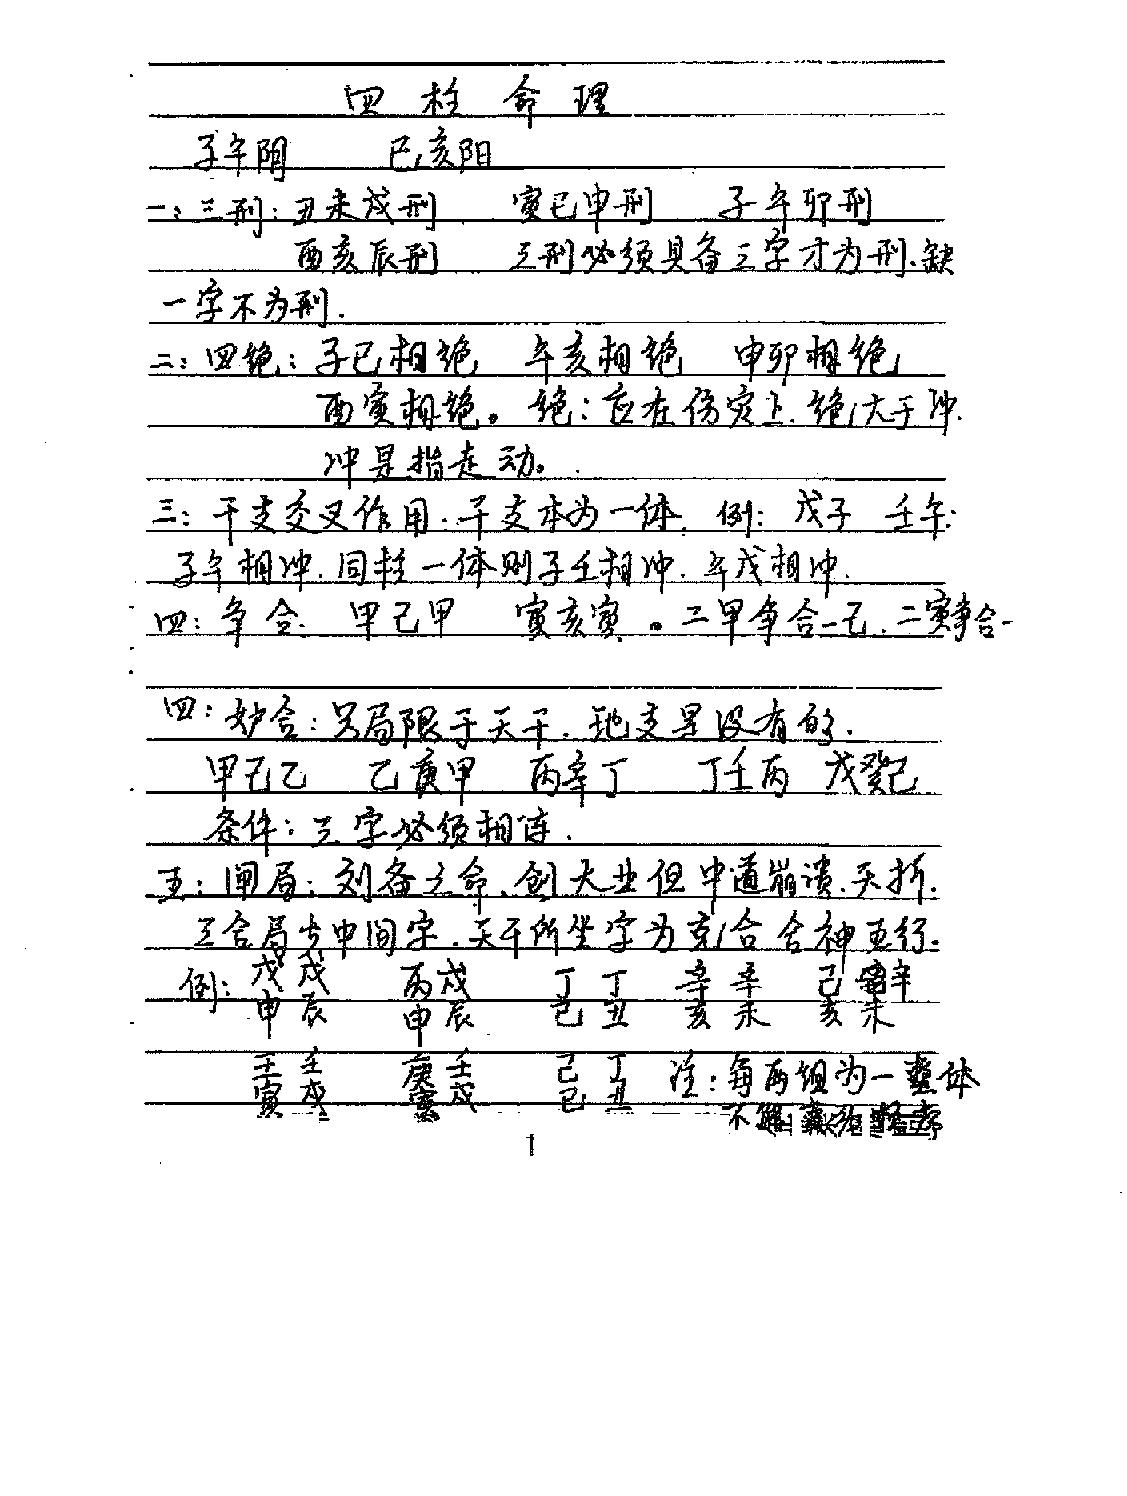 四柱命理
子午阴 巳亥阳
一：三刑：丑未戌刑 寅巳申刑 子午卯刑
酉亥辰刑 三刑必须具备三字才为刑.缺
一字不为刑.
二：四绝：子巳相绝 午亥相绝 申卯相绝
酉寅相绝。绝：应在伤灾上.绝大于冲.
冲是指走动。
三：干支交叉作用.干支本为一体. 例：戊子 壬午：
子午相冲.同柱一体则子壬相冲.午戊相冲.
四：争合. 甲己甲 寅亥寅。二甲争合一己.二寅争合一
四：妒合：只局限于天干.地支是没有的.
甲己乙 乙庚甲 丙辛丁 丁壬丙 戊癸己
条件：三字必须相连.
五：闸局：刘备之命.创大业但中道崩溃.夭折.
三合局步中间字.天干所坐字为克合合神五行.
例：戊戊 丙戊 丁丁 辛辛 己辛
申辰 申辰 巳丑 亥未 亥未
壬壬 庚壬 己丁 注：每两组为一整体
寅戌 寅戌 巳丑 不解
1